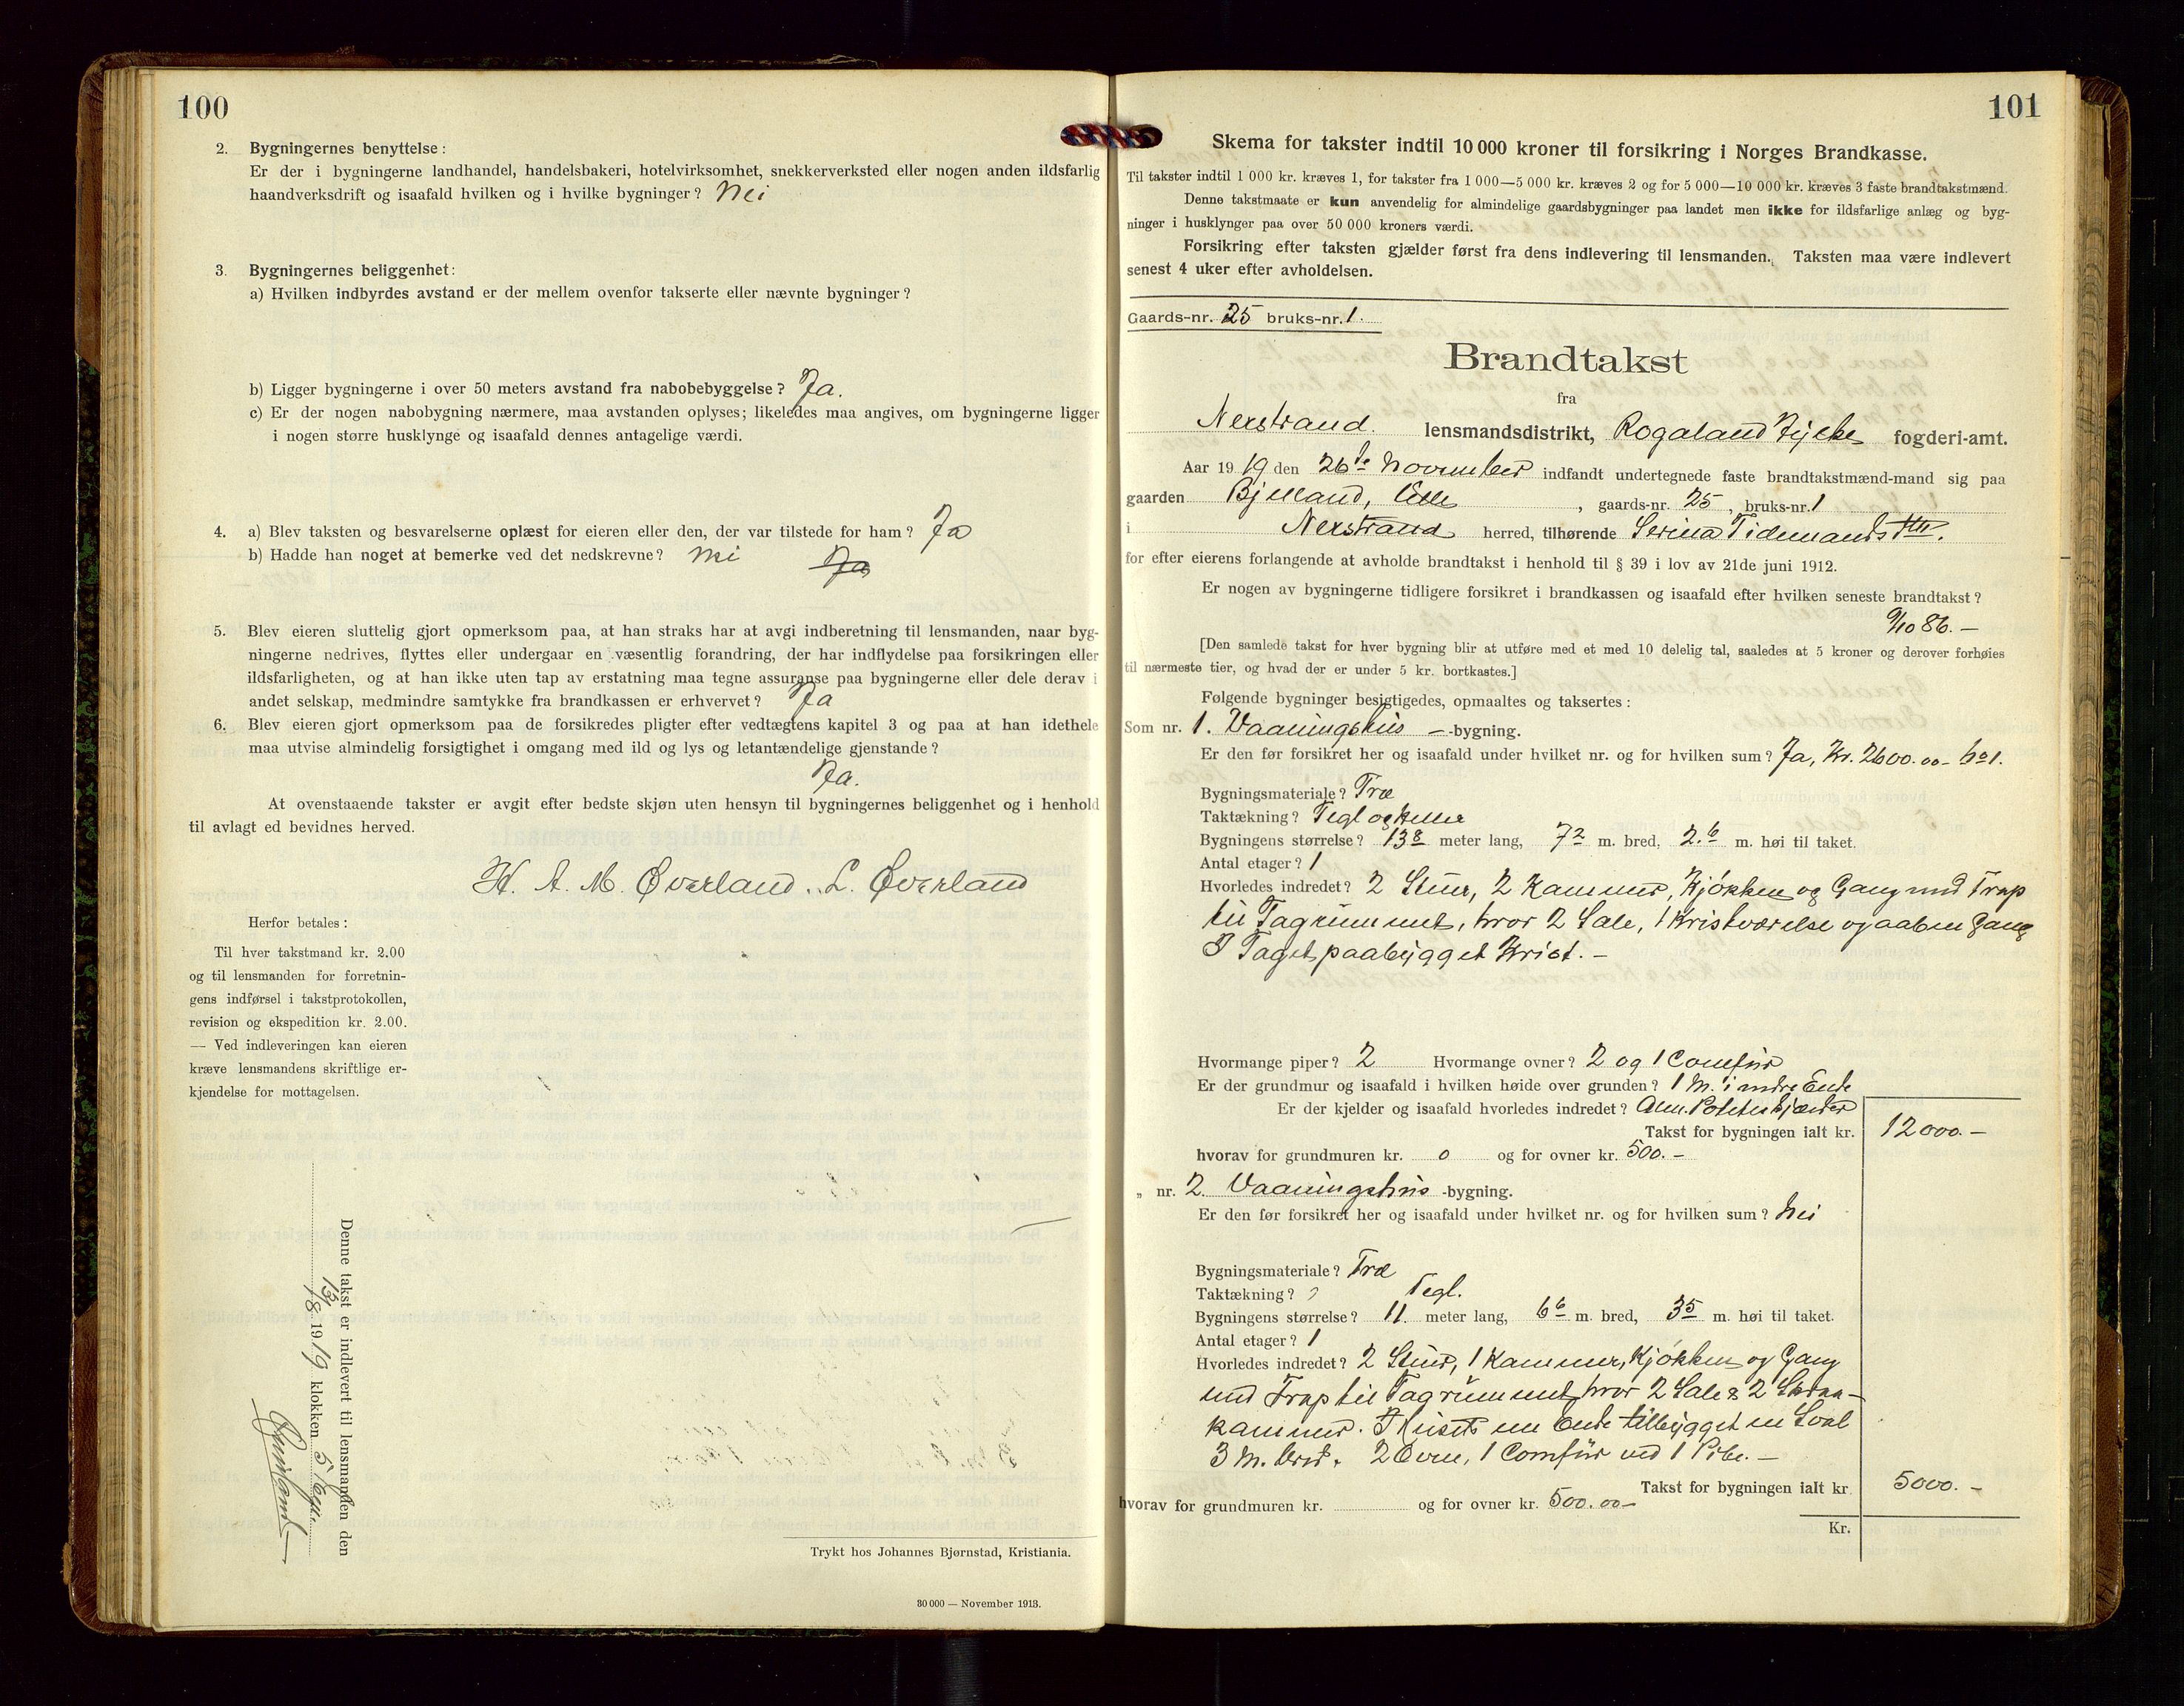 100
2. Bygningernes benyttelse:
Er der i bygningerne landhandel, handelsbakeri, hotelvirksomhet, snekkerverksted eller nogen anden ildsfarlig
haandverksdrift og isaafald hvilken og i hvilke bygninger? Nei
3. Bygningernes beliggenhet:
a) Hvilken indbyrdes avstand er der mellem ovenfor takserte eller nævnte bygninger?
b) Ligger bygningerne i over 50 meters avstand fra nabobebyggelse? Ja.
c) Er der nogen nabobygning nærmere, maa avstanden oplyses; likeledes maa angives, om bygningerne ligger
i nogen større husklynge og isaafald dennes antagelige værdi.
4. a) Blev taksten og besvarelserne oplæst for eieren eller den, der var tilstede for ham? Ja
b) Hadde han noget at bemerke ved det nedskrevne? Nei Ja
5. Blev eieren sluttelig gjort opmerksom paa, at han straks har at avgi indberetning til lensmanden, naar byg-
ningerne nedrives, flyttes eller undergaar en væsentlig forandring, der har indflydelse paa forsikringen eller
ildsfarligheten, og at han ikke uten tap av erstatning maa tegne assuranse paa bygningerne eller dele derav i
andet selskap, medmindre samtykke fra brandkassen er erhvervet? Ja
6. Blev eieren gjort opmerksom paa de forsikredes pligter efter vedtægtens kapitel 3 og paa at han idethele
maa utvise almindelig forsigtighet i omgang med ild og lys og letantændelige gjenstande?
Ja.
At ovenstaaende takster er avgit efter bedste skjøn uten hensyn til bygningernes beliggenhet og i henhold
til avlagt ed bevidnes herved.
H. A. M. Øverland. L. Øverland
Herfor betales:
Til hver takstmand kr. 2.00
og til lensmanden for forretnin-
gens indførsel i takstprotokollen,
revision og ekspedition kr. 2.00.
— Ved indleveringen kan eieren
kræve lensmandens skriftlige er-
kjendelse for mottagelsen.
Denne takst er indlevert til lensmanden den
13/8 1919 klokken 5
Trykt hos Johannes Bjørnstad, Kristiania.
30 000 — November 1913.
101
Skema for takster indtil 10 000 kroner til forsikring i Norges Brandkasse.
Til takster indtil 1 000 kr. kræves 1, for takster fra 1 000—5 000 kr. kræves 2 og for 5 000—10 000 kr. kræves 3 faste brandtakstmænd.
Denne takstmaate er kun anvendelig for almindelige gaardsbygninger paa landet men ikke for ildsfarlige anlæg og byg-
ninger i husklynger paa over 50 000 kroners værdi.
Forsikring efter taksten gjælder først fra dens indlevering til lensmanden. Taksten maa være indlevert
senest 4 uker efter avholdelsen.
Gaards-nr. 25 bruks-nr. 1.
Brandtakst
fra
Nerstrand. lensmandsdistrikt, Rogaland Fylke fogderi-amt.
Aar 1919 den 26de November indfandt undertegnede faste brandtakstmænd-mand sig paa
gaarden Bjelland, Lille, gaards-nr. 25, bruks-nr. 1
i Nerstrand herred, tilhørende Serina Tidemands
for efter eierens forlangende at avholde brandtakst i henhold til § 39 i lov av 21de juni 1912.
Er nogen av bygningerne tidligere forsikret i brandkassen og isaafald efter hvilken seneste brandtakst?
9/10 86. —
[Den samlede takst for hver bygning blir at utføre med et med 10 delelig tal, saaledes at 5 kroner og derover forhøies
til nærmeste tier, og hvad der er under 5 kr. bortkastes.]
Følgende bygninger besigtigedes, opmaaltes og taksertes:
Som nr. 1. Vaaningshus -bygning.
Er den før forsikret her og isaafald under hvilket nr. og for hvilken sum? Ja, Kr. 2600.00
Bygningsmateriale? Træ
Taktækning? Tegl og Heller
Bygningens størrelse? 13 8 meter lang, 7 2 m. bred, 2.6 m. høi til taket.
Antal etager? 1
Hvorledes indredet? 2 Stuer, 2 Kammers, Kjøkken og Gang med Trap
til Tagrummet, hvor 2 Sale, 1 Kvistværelse og aaben Gang
I Taget paabygget Kvist. —
Hvormange piper? 2 Hvormange ovner? 2 og 1 Comfür
Er der grundmur og isaafald i hvilken høide over grunden? 1 M. i nedre Ende
Er der kjelder og isaafald hvorledes indredet? Alm. Poteteskjælder
Takst for bygningen ialt kr. 12000.—
hvorav for grundmuren kr. 0 og for ovner kr. 500.—
„ nr. 2. Vaaningshus -bygning.
Er den før forsikret her og isaafald under hvilket nr. og for hvilken sum? Nei
Bygningsmateriale? Træ
Taktækning? Tegl.
Bygningens størrelse? 11. meter lang, 6 6 m. bred, 3 5 m. høi til taket.
Antal etager? 1
Hvorledes indredet? 2 Stuer, 1 Kammer, Kjøkken og Gang
med Trap til Tagrummet hvor 2 Sale & 2 Skraa-
kammer. I Husets ene Ende tilbygget en Sval
3 M. bred. 2 Ovne, 1 Comfür ved 1 Pibe. —
Takst for bygningen ialt kr. 5000.—
hvorav for grundmuren kr. og for ovner kr. 500.00—
Kr.